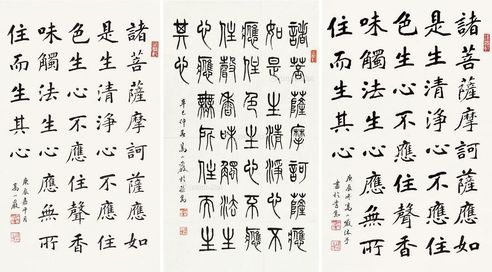 諸菩薩摩訶薩應如
是生清淨心不應住
色生心不應住聲香
味觸法生心應無所
住而生其心
諸菩薩摩訶薩應
如是生清淨心不
應住色生心不應
住聲香味觸法生
心應無所住而生
其心
諸菩薩摩訶薩應如
是生清淨心不應住
色生心不應住聲香
味觸法生心應無所
住而生其心